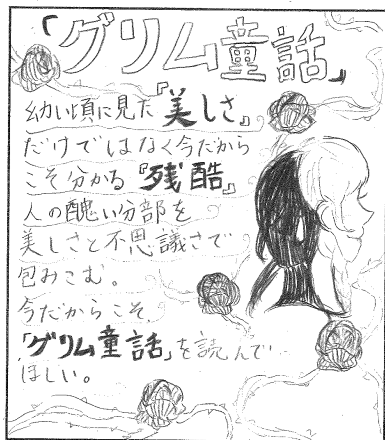 「グリム童話」
幼い頃に見た『美しさ』
だけではなく今だから
こそ分かる『残酷』
人の醜い分部を
美しさと不思議さで
包みこむ。
今だからこそ、
「グリム童話」を読んで
ほしい。